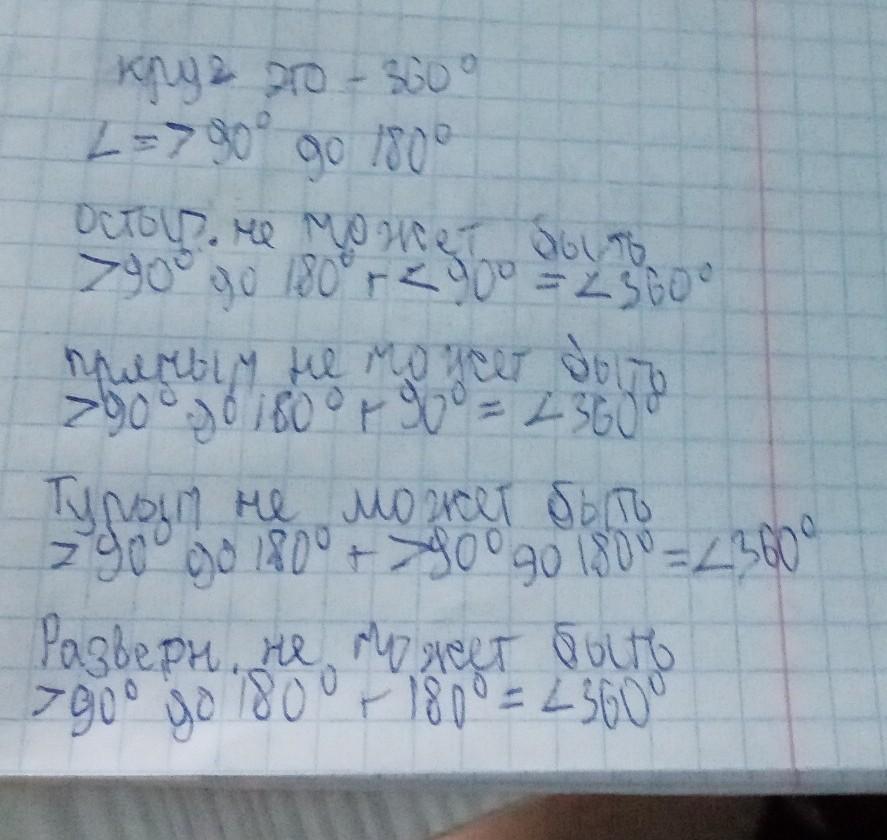 круг это - 360°
∠ = >90° до 180°
остыр. не может быть
>90° до 180° + <90° = <360°
прямым не может быть
>90° до 180° + 90° = <360°
Тупым не может быть
>90° до 180° + >90° до 180° = <360°
Разверн. не может быть
>90° до 180° + 180° = <360°